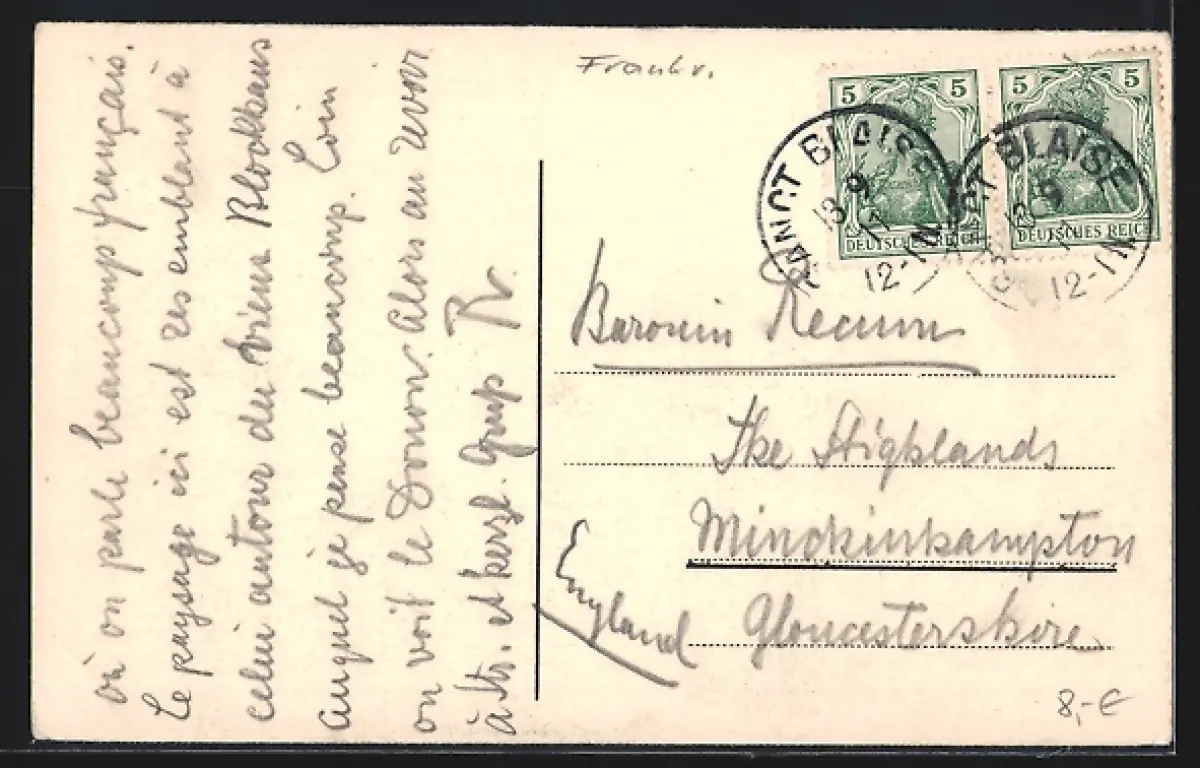 où on parle beaucoup français.
Le paysage ici est res emblant à
celui autour du vieux Blockhaus
auquel je pense beaucoup. Loin
on voit le Donon. Alors au revoir
à Str. et herzl.
Frankr.
5 5
DEUTSCHES REICH
5 5
DEUTSCHES REICH
SANCT BLAISE
13 9
12-1N
SANCT BLAISE
13 9
12-1N
Baronin Recum
The Highlands
Minchinhampton
Gloucestershire
England
8,-€